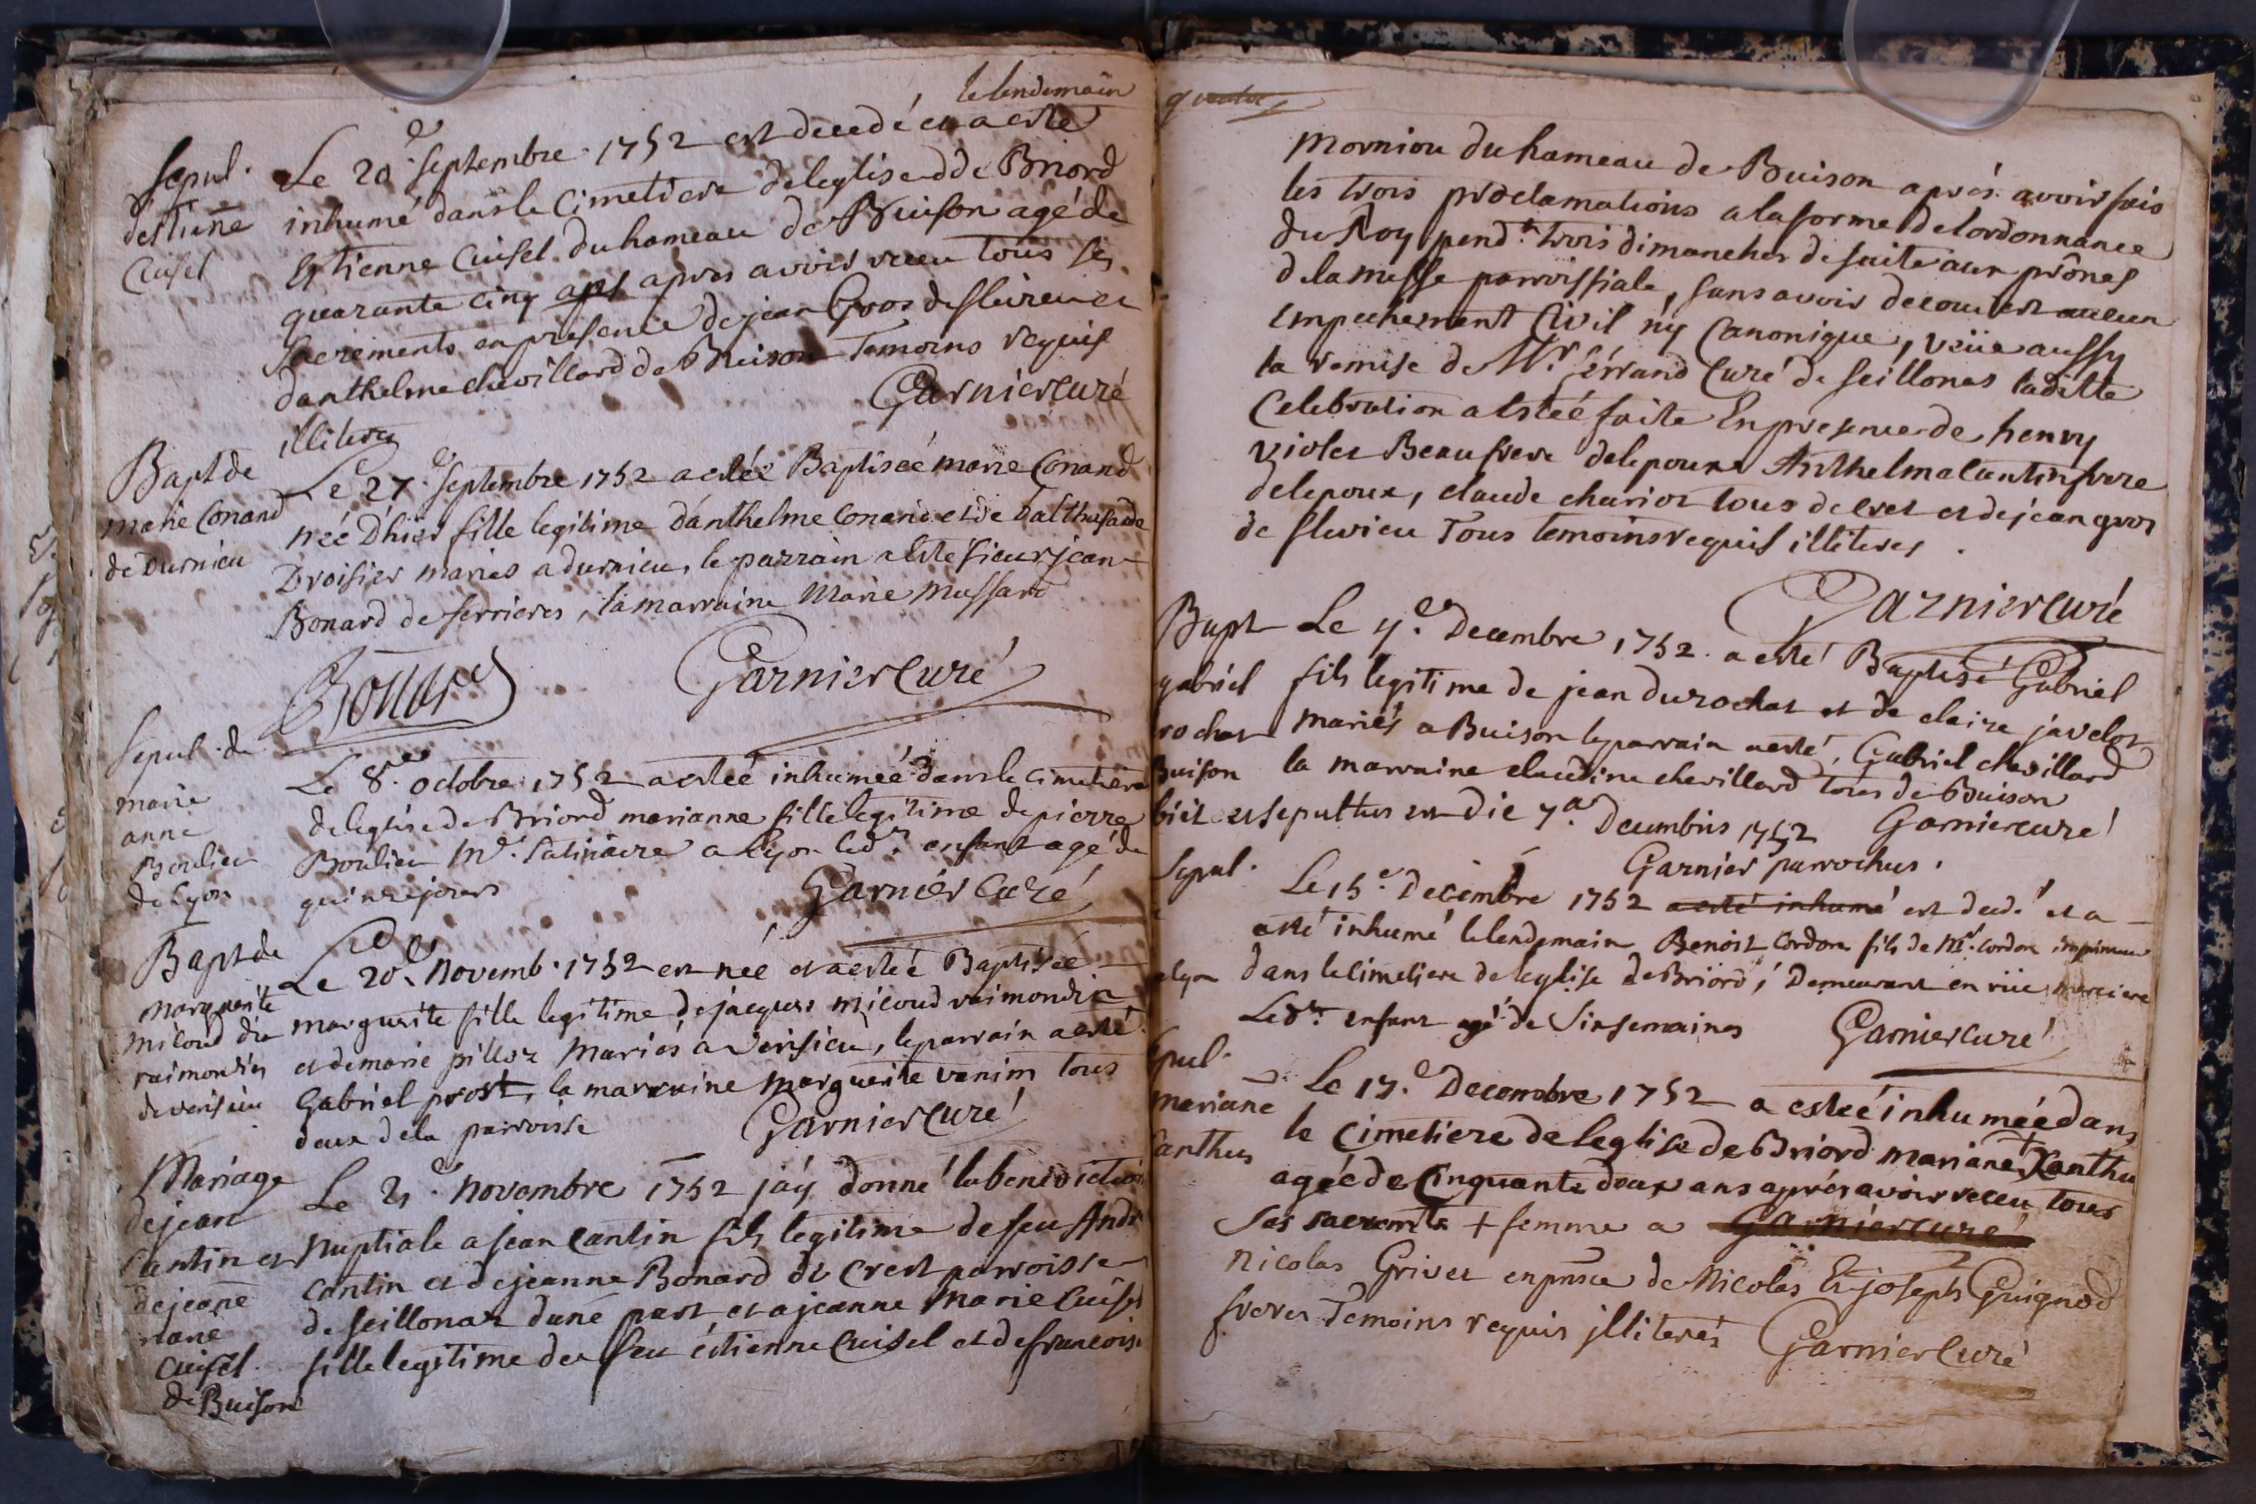 le lendemain
Sepul.
destiene
Cuisel
Le 20.e Septembre 1752 est decedé et a esté
inhumé dans le Cimetiere de leglise de Briord
Estienne Cuisel du hameau de Buison agé de
quarante cinq ans apres avoir receu tous ses
sacrements en presence de jean Gros de fleurieu et
danthelme chevillard de Buison Temoins requis
illiteres Garnier Curé
Bapt de
marie Conand
de Durnieu
Le 27.e Septembre 1752 a estée Baptiseé marie Conand
neé D'hier fille legitime d'anthelme Conand et de balthasarde
Droisier mariés a durnieu, le parrain a esté sieur jean
Bonard de serrieres, la marraine Marie Massard
Bonard Garnier Curé
Sepul. de
marie
anne
Boulieu
de Lyon
Le 8.e octobre 1752 a esteé inhumeé dans le cimetiere
de leglise de Briord marianne fille legitime de pierre
Boulieu M.d Satinaire a Lyon led.t enfant agé de
quinze jours Garnier Curé
Bapt de
Marguerite
Miloud dit
raimondin
de verisieu
Le 20.e Novemb. 1752 est neé et a esteé Baptiseé
marguerite fille legitime de jacques miloud raimondin
et de marie pilloz mariés a Verisieu, le parrain a esté
Gabriel prost, la marraine marguerite vanin tous
deux de la parroisse Garnier Curé
Mariage
de jean
Cantin et
de jeane
marie
Cuisel
de Buison
Le 21.e Novembre 1752 j'aÿ donné la benediction
Nuptiale a jean Cantin fils legitime de feu André
Cantin et de jeanne Bonard de Crest parroisse
de seillonaz dune part, et a jeanne Marie Cuisel
fille legitime de feu étienne Cuisel et de francoise
Morniou du hameau de Buison aprés avoir fais
les trois proclamations a la forme de lordonnance
du Roy pend.t trois dimanches de suite aux prônes
de la messe parroissiale, sans avoir decouvert aucun
Empechement Civil ny Canonique, veüe aussy
la remise de Mr. Curé de seillonas ladite
Celebration a esteé faite En presence de henry
violet Beaufrere de lepoux Anthelme Cantin frere
de lepoux, claude chariot tous de Crest et de jean gros
de flurieu Tous temoins requis illiteres.
Garnier Curé
Bapt
gabriel
rochat
Buison
Le 4.e Decembre 1752 a esté Baptisé Gabriel
fils legitime de jean durochat et de claire javelot
Mariés a Buison le parrain a esté Gabriel chevillard
la marraine claudine chevillard tous de Buison
Garnier curé
biit et sepultus est die 7.a Decembris 1752
Garnier parrochus.
Sepul.
a Lyon
Le 15.e Decembre 1752 a esté inhumé est deced.é et a
esté inhumé le lendemain Benoit Cordon fils de Mr. Cordon imprimeur
dans le cimetiere de leglise de Briord, Demeurant en rüe merciere
Led.t enfant agé de Six semaines Garnier curé
Sepul.
Mariane
Canthus
Le 17.e Decembre 1752 a esteé inhumeé dans
le Cimetiere de leglise de Briord mariane + Xanthu
ageé de Cinquante deux ans aprés avoir receu tous
Ses sacremts + femme a Garnier curé
Nicolas Grivet en pnsce de Nicolas Et joseph Guignod
freres Temoins requis illiterés Garnier Curé